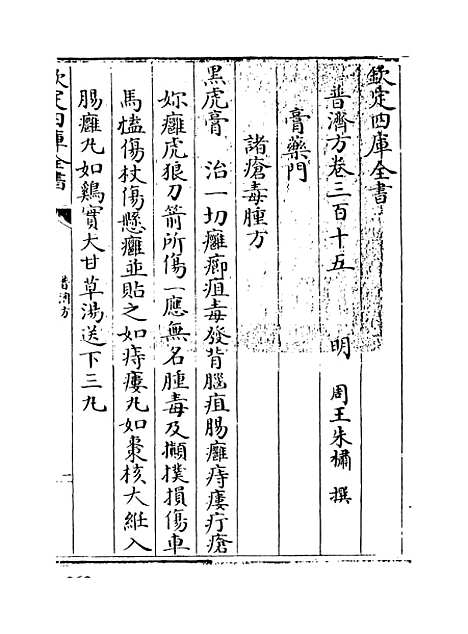 欽定四庫全書
普濟方卷三百十五
明 周王朱橚 撰
膏藥門
諸瘡毒腫方
黑虎膏 治一切癰癤疽毒發背腦疽腸癰痔瘻疔瘡
妳癰虎狼刀箭所傷一應無名腫毒及攧撲損傷車
馬𣖕傷杖傷懸癰並貼之如痔瘻丸如棗核大絍入
腸癰丸如雞實大甘草湯送下三九
欽定四庫全書
普濟方
一